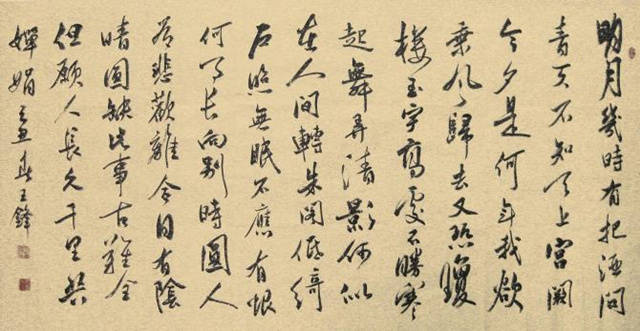 明月幾時有把酒問
青天不知天上宮闕
今夕是何年我欲
乘风歸去又恐瓊
樓玉宇高處不勝寒
起舞弄清影何似
在人间轉朱閣低綺
户照無眠不應有恨
何事长向别時圓人
有悲歡離合月有陰
晴圓缺此事古難全
但願人長久千里共
嬋娟 春王鋒